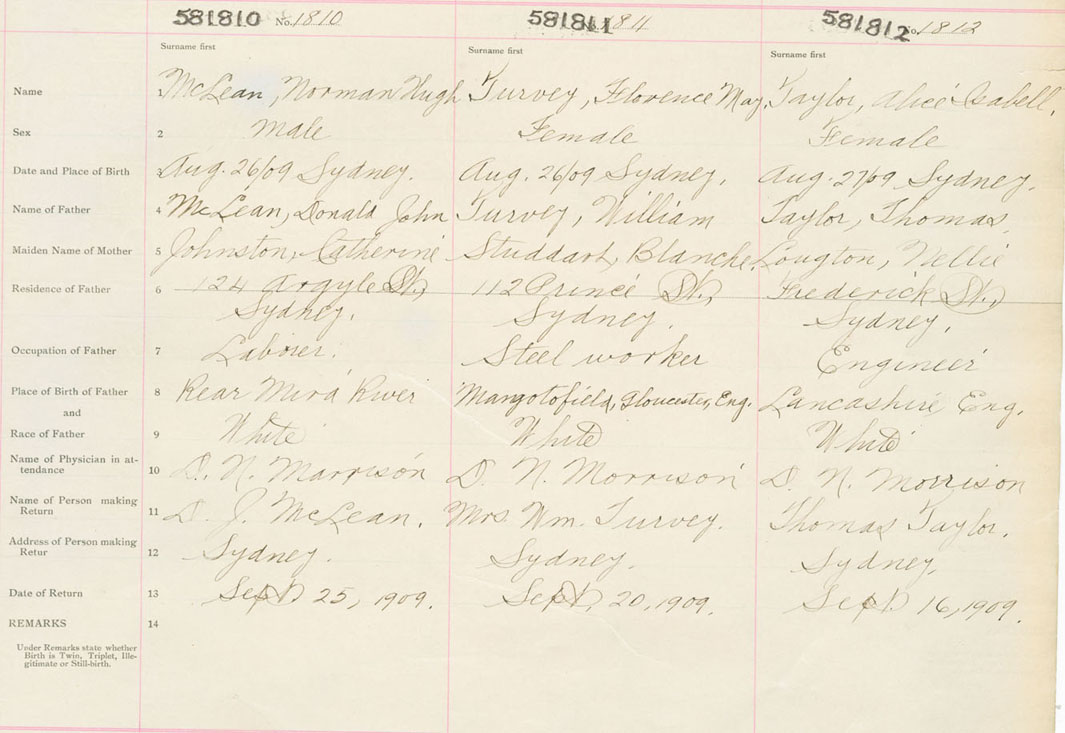 581810 No. 1810 581811 No. 1811 581812 No. 1812
Surname first Surname first Surname first
Name 1 McLean, Norman Hugh Turvey, Florence May. Taylor, Alice Isabell.
Sex 2 Male Female Female
Date and Place of Birth 3 Aug. 26/09 Sydney. Aug. 26/09 Sydney. Aug. 27/09 Sydney.
Name of Father 4 McLean, Donald John Turvey, William Taylor, Thomas.
Maiden Name of Mother 5 Johnston, Catherine Studdart, Blanche. Lougton, Nellie
Residence of Father 6 124 Argyle St., 112 Prince St., Frederick St.,
Sydney. Sydney. Sydney.
Occupation of Father 7 Laborer. Steel worker Engineer
Place of Birth of Father 8 Rear Mira River Mangotofield, Gloucester, Eng. Lancashire Eng.
and
Race of Father 9 White White White
Name of Physician in at-
tendance 10 D. N. Marrison D. N. Morrison D. N. Morrison
Name of Person making
Return 11 D. J. McLean. Mrs. Wm. Turvey. Thomas Taylor.
Address of Person making
Retur 12 Sydney. Sydney. Sydney.
Date of Return 13 Sept. 25, 1909. Sept. 20, 1909. Sept. 16, 1909.
REMARKS 14
Under Remarks state whether
Birth is Twin, Triplet, Ille-
gitimate or Still-birth.